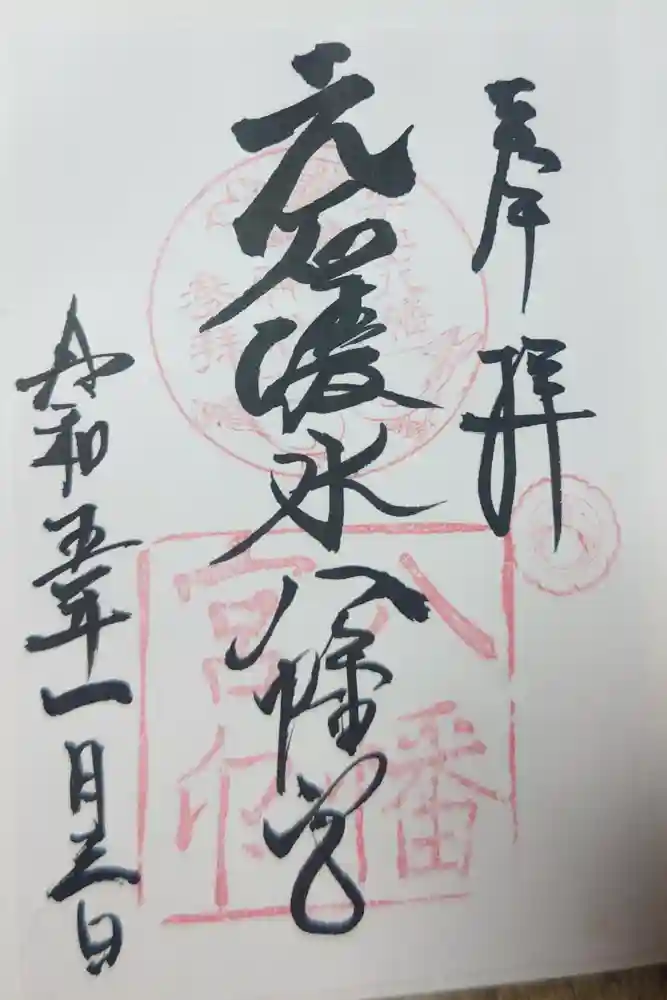 奉拝
元石清水八幡宮
令和五年一月三日
八幡
宮印
参拝